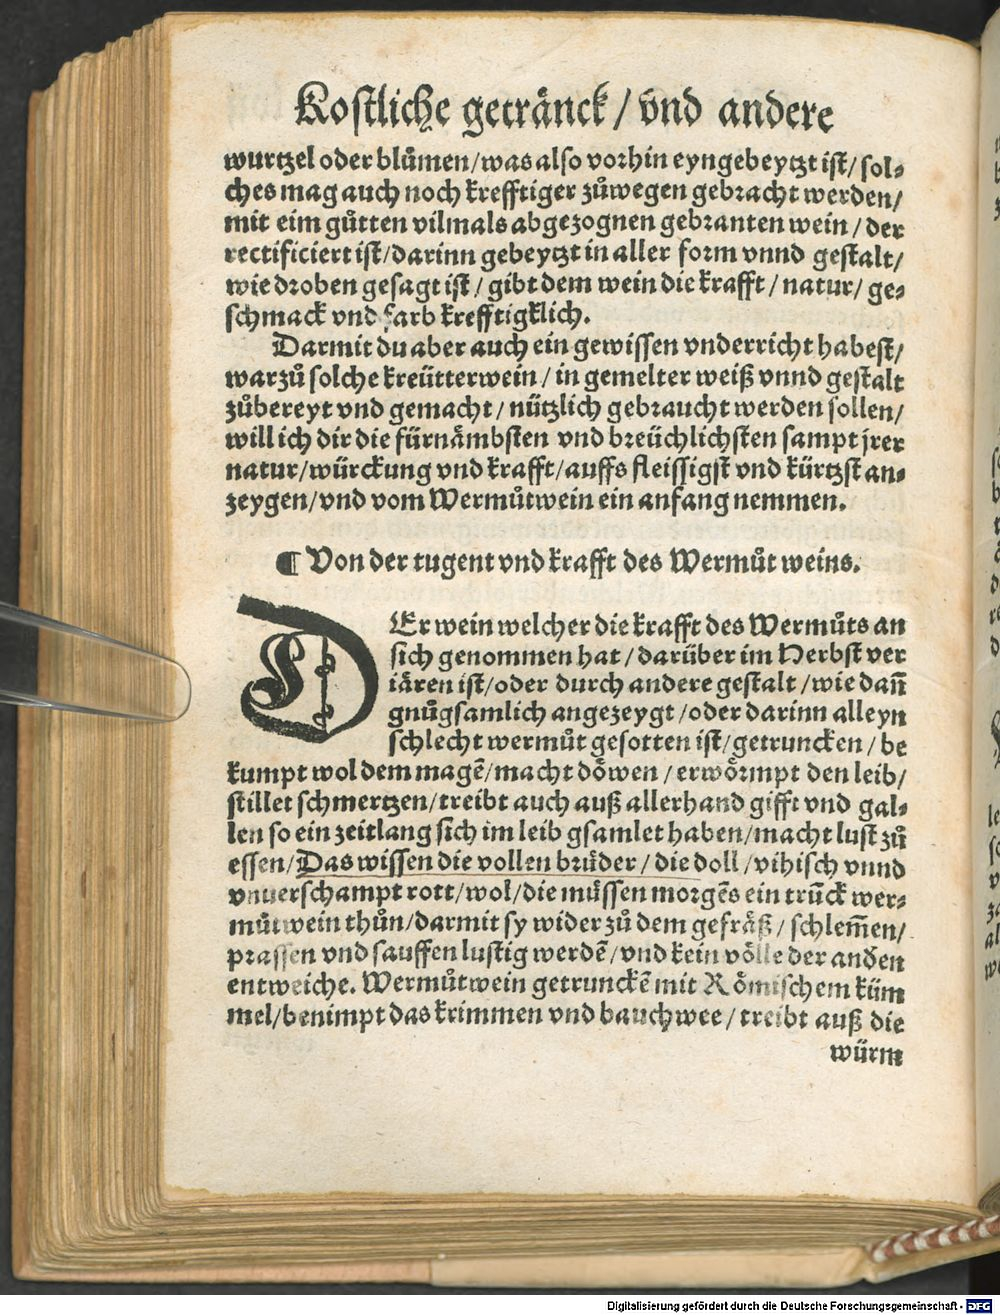 Kostliche getränck / vnd andere
wurtzel oder blůmen / was also vorhin eyngebeytzt ist / sol⸗
ches mag auch noch krefftiger zůwegen gebracht werden /
mit eim gůtten vilmals abgezognen gebranten wein / der
rectificiert ist / darinn gebeytzt in aller form vnnd gestalt /
wie droben gesagt ist / gibt dem wein die krafft / natur / ge⸗
schmack vnd farb krefftigklich.
Darmit du aber auch ein gewissen vnderricht habest /
warzů solche kreütterwein / in gemelter weiß vnnd gestalt
zůbereyt vnd gemacht / nützlich gebraucht werden sollen /
will ich dir die fürnämbsten vnd breüchlichsten sampt jrer
natur / würckung vnd krafft / auffs fleissigst vnd kürtzst an⸗
zeygen / vnd vom Wermůtwein ein anfang nemmen.
¶ Von der tugent vnd krafft des Wermůt weins.
DEr wein welcher die krafft des Wermůts an
sich genommen hat / darüber im Herbst ver
iären ist / oder durch andere gestalt / wie dañ
gnůgsamlich angezeygt / oder darinn alleyn
schlecht wermůt gesotten ist / getruncken / be
kumpt wol dem magẽ / macht döwen / erwörmpt den leib /
stillet schmertzen / treibt auch auß allerhand gifft vnd gal⸗
len so ein zeitlang sich im leib gsamlet haben / macht lust zů
essen / Das wissen die vollen brüder / die doll / vihisch vnnd
vnuerschampt rott / wol / die müssen morgẽs ein trũck wer⸗
můtwein thůn / darmit sy wider zů dem gefräß / schlem̃en /
prassen vnd sauffen lustig werdẽ / vnd kein völle der anden
entweiche. Wermůtwein getrunckẽ mit Römischem küm
mel / benimpt das krimmen vnd bauchwee / treibt auß die
würm
Digitalisierung gefördert durch die Deutsche Forschungsgemeinschaft - DFG